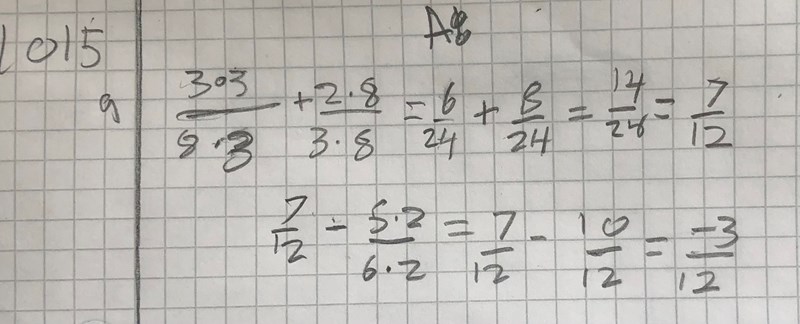 A8
1015
a 3·3/8·3 + 2·8/3·8 = 6/24 + 8/24 = 14/24 = 7/12
7/12 - 5·2/6·2 = 7/12 - 10/12 = -3/12